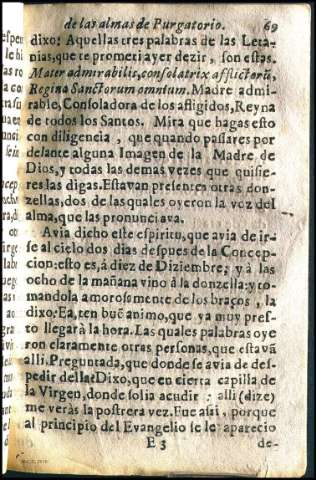 de las almas de Purgatorio. 69
dixo: Aquellas tres palabras de las Leta-
nias, que te prometi ayer dezir, son estas.
Mater admirabilis, consolatrix afflictorũ,
Regina Sanctorum omnium. Madre admi-
rable, Consoladora de los afligidos, Reyna
de todos los Santos. Mira que hagas esto
con diligencia, que quando passares por
delante alguna Imagen de la Madre de
Dios, y todas las demas vezes que quisie-
res las digas. Estavan presentes otras don-
zellas, dos de las quales oyeron la voz del
alma, que las pronunciava.
Avia dicho este espiritu, que avia de ir-
se al cielo dos dias despues de la Concep-
cion: esto es, à diez de Diziembre; y à las
ocho de la mañana vino à la donzella: y to-
mandola amorosamente de los braços, la
dixo: Ea, ten buẽ animo, que ya muy pres-
to llegarà la hora. Las quales palabras oye
ron claramente otras personas, que estavã
alli. Preguntada, que donde se avia de des-
pedir della? Dixo, que en cierta capilla de
la Virgen, donde solia acudir: alli (dize)
me veràs la postrera vez. Fue assi, porque
al principio del Evangelio se le aparecio
E 3 de-